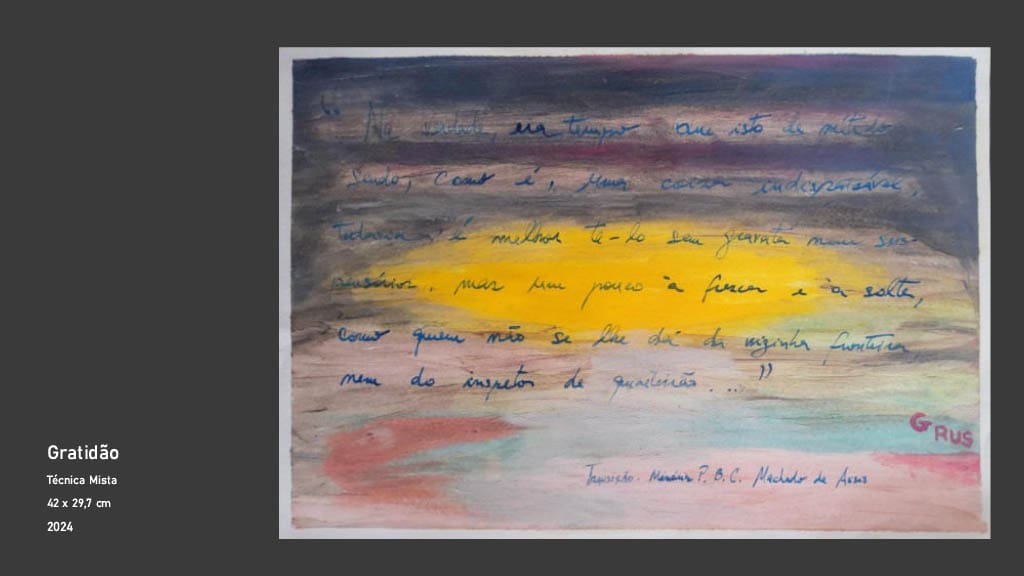 “Na verdade, era tempo. Que isto de método
sendo, como é, uma coisa indispensável,
todavia é melhor tê-lo sem gravata nem sus-
pensórios, mas um pouco à fresca e à solta,
como quem não se lhe dá da vizinha fronteira,
nem do inspetor de quarteirão..."
GRUS
Memórias P. B. C. Machado de Assis
Gratidão
Técnica Mista
42 x 29,7 cm
2024